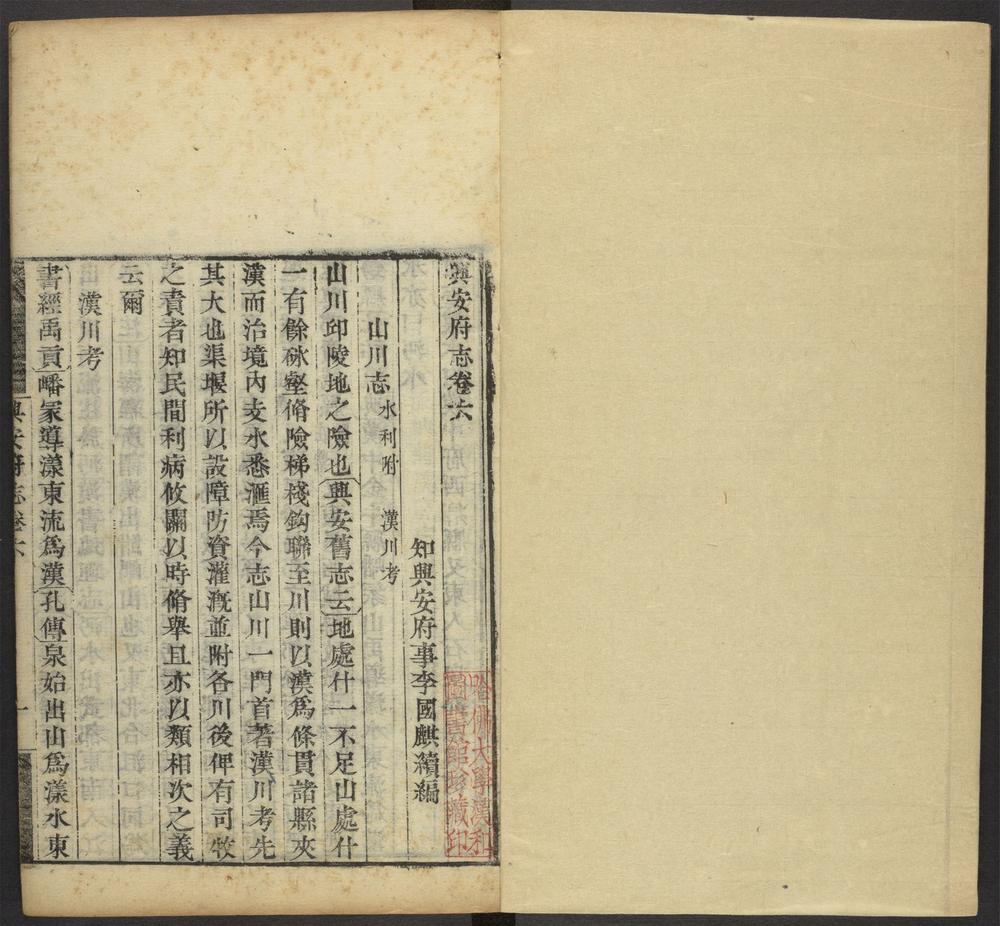 興安府志卷六
知興安府事李國麒續編
山川志 水利附 漢川考
山川印陵地之險也興安舊志云地處什一不足山處什
一有餘砅壑脩險梯棧鈎聯至川則以漢爲條貫諸縣夾
漢而治境內支水悉滙焉今志山川一門首著漢川考先
其大也渠堰所以設障防資灌漑並附各川後俾有司牧
之責者知民間利病攸關以時脩舉且亦以類相次之義
云爾
漢川考
書經禹貢嶓冢導漾東流爲漢孔傳泉始出山爲漾水東
興安府志卷六
一
哈佛大學漢和
圖書館珍藏印